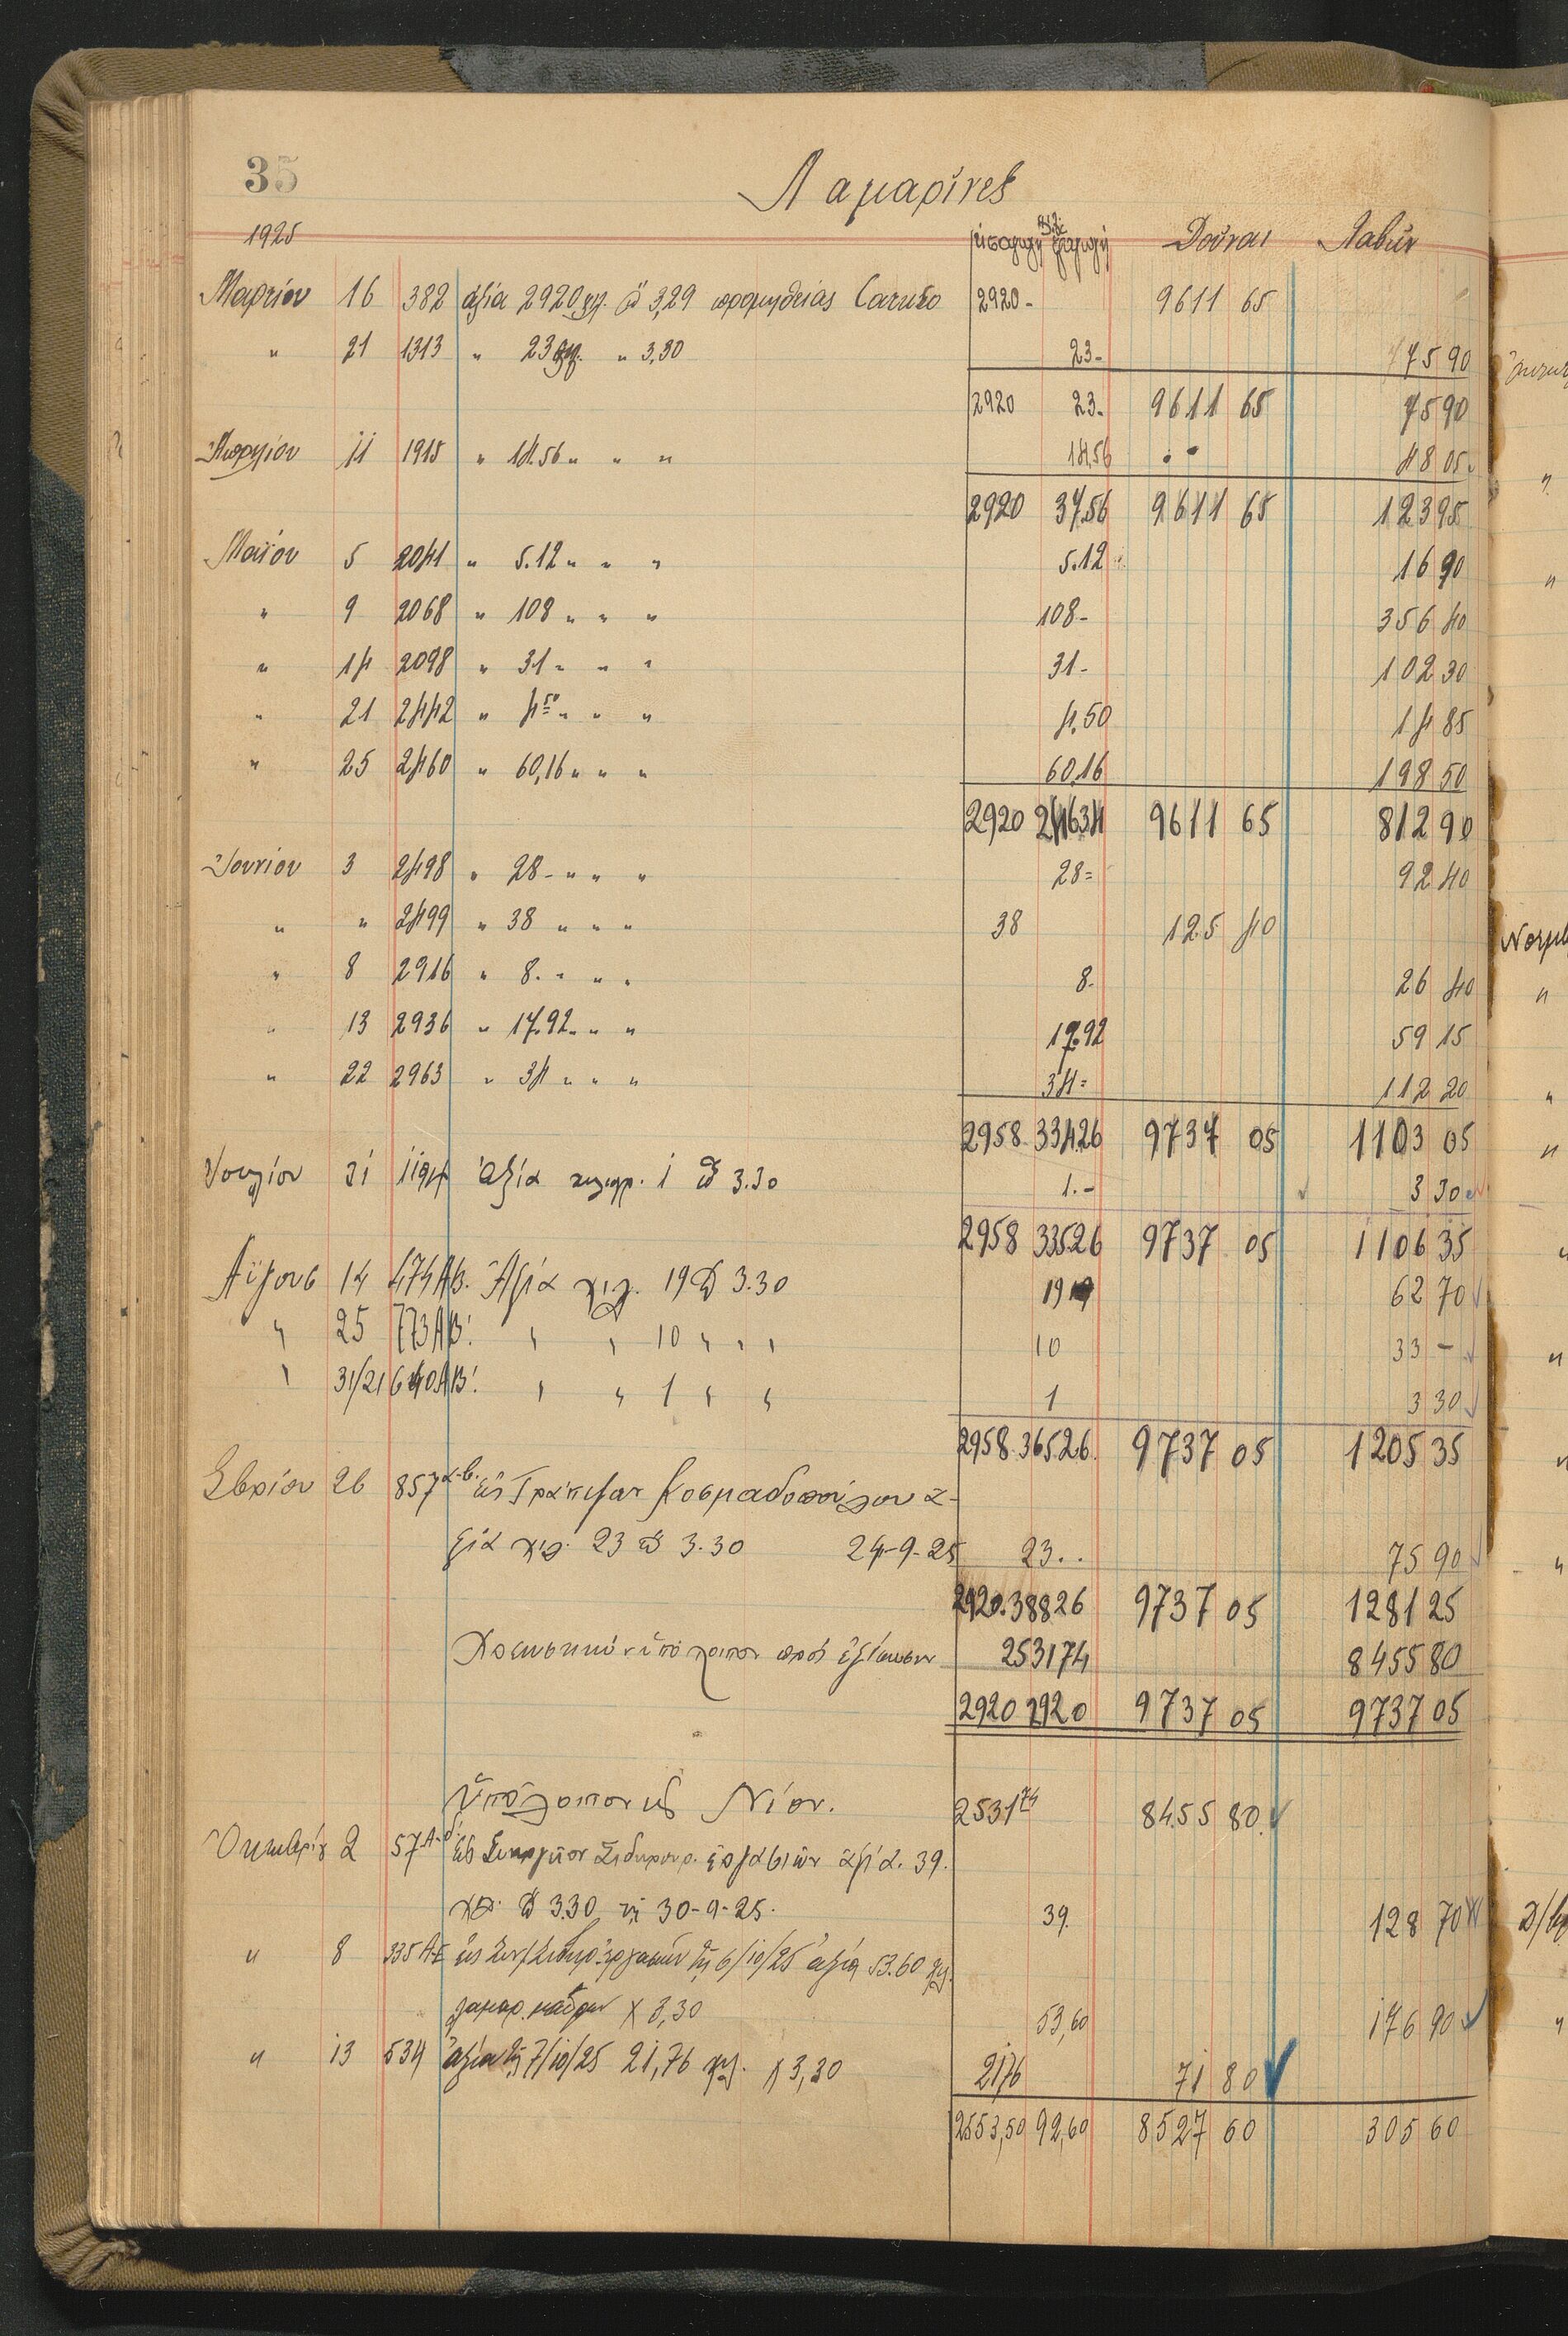 35
Λαμαρίνες
1925 εἰσαγωγή ἐξαγωγή Δοῦναι Λαβεῖν
Μαρτίου 16 382 ἀξία 2920 χγ. @ 3,29 προμηθείας Caruso 2920- 9611 65
" 21 1313 " 23 χγ. " 3,30 23- 75 90
2920 23- 9611 65 75 90
Ἀπριλίου 11 1915 " 14.56 " " " 14,56 48 05
2920 37.56 9611 65 123 95
Μαΐου 5 2041 " 5.12 " " " 5.12 16 90
" 9 2068 " 108 " " " 108- 356 40
" 14 2098 " 31 " " " 31- 102 30
" 21 2442 " 4 50 " " " 4,50 14 85
" 25 2460 " 60,16 " " " 60,16 198 50
2920 246 34 9611 65 812 90
Ἰουνίου 3 2498 " 28- " " " 28= 92 40
" " 2499 " 38 " " " 38 125 40
" 8 2916 " 8. " " " 8- 26 40
" 13 2936 " 17.92 " " " 17.92 59 15
" 22 2963 " 34 " " " 34= 112 20
2958 334.26 9737 05 1103 05
Ἰουλίου 31 1194 ἀξία χιλγρ. 1 @ 3.30 1.- 3 30
2958 335.26 9737 05 1106 35
Αὔγουσ 14 474 ΑΒ. Ἀξία χιλ. 19 @ 3.30 19 62 70
" 25 773 ΑΒ' " " 10 " " " 10 33 -
" 31/21 640 ΑΒ' " " 1 " " 1 3 30
2958 365 26 9737 05 1205 35
Σβρίου 26 857 α-β. εἰς Τράπεζαν Κοσμαδοπούλου ἀ-
ξία χιλ. 23 @ 3.30 24-9-25 23.. 75 90
2920. 388 26 9737 05 1281 25
Χρεωστικόν ὑπόλοιπον πρός ἐξίσωσιν 2531 74 8455 80
2920 2920 9737 05 9737 05
Ὑπόλοιπον εἰς Νέον. 2531 74 8455 80
Ὀκτωβρίου 2 57 Α-δ' εἰς Συνεργεῖον Σιδηρουρ. ἐργασιῶν ἀξία 39.
χιλ. @ 3.30 τῇ 30-9-25. 39. 128 70
" 8 335 Α-Ε εἰς Συν/ Σιδηρ. ἐργασιῶν τῇ 6/10/25 ἀξία 53.60 χγ.
λαμαρ. X 3,30 53,60 176 90
" 13 534 ἀξία τῇ 7/10/25 21,76 χγ. X 3,30 21,76 71 80
2553,50 92,60 8527 60 305 60